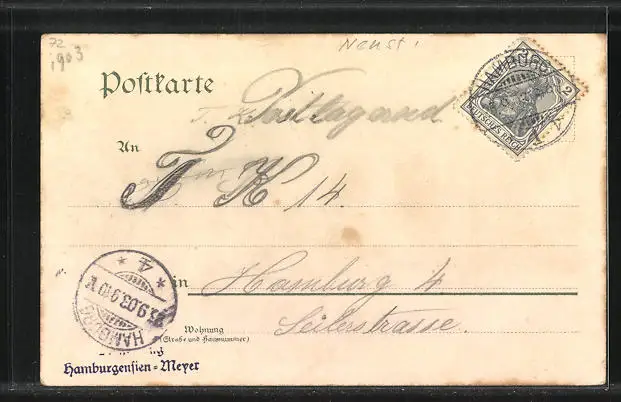 72
1903
Neust.
Postkarte
Postlagernd
An
J K 14.
in Hamburg 4
Seilerstrasse.
Wohnung
(Straße und Hausnummer)
Hamburgensien-Meyer
HAMBURG
2
DEUTSCHES REICH
HAMBURG
* 4 *
23.9.03.9-10 V.